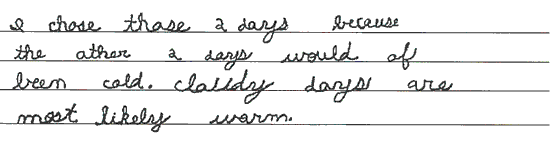 I chose those 2 days because
the other 2 days would of
been cold. cloudy days are
most likely warm.